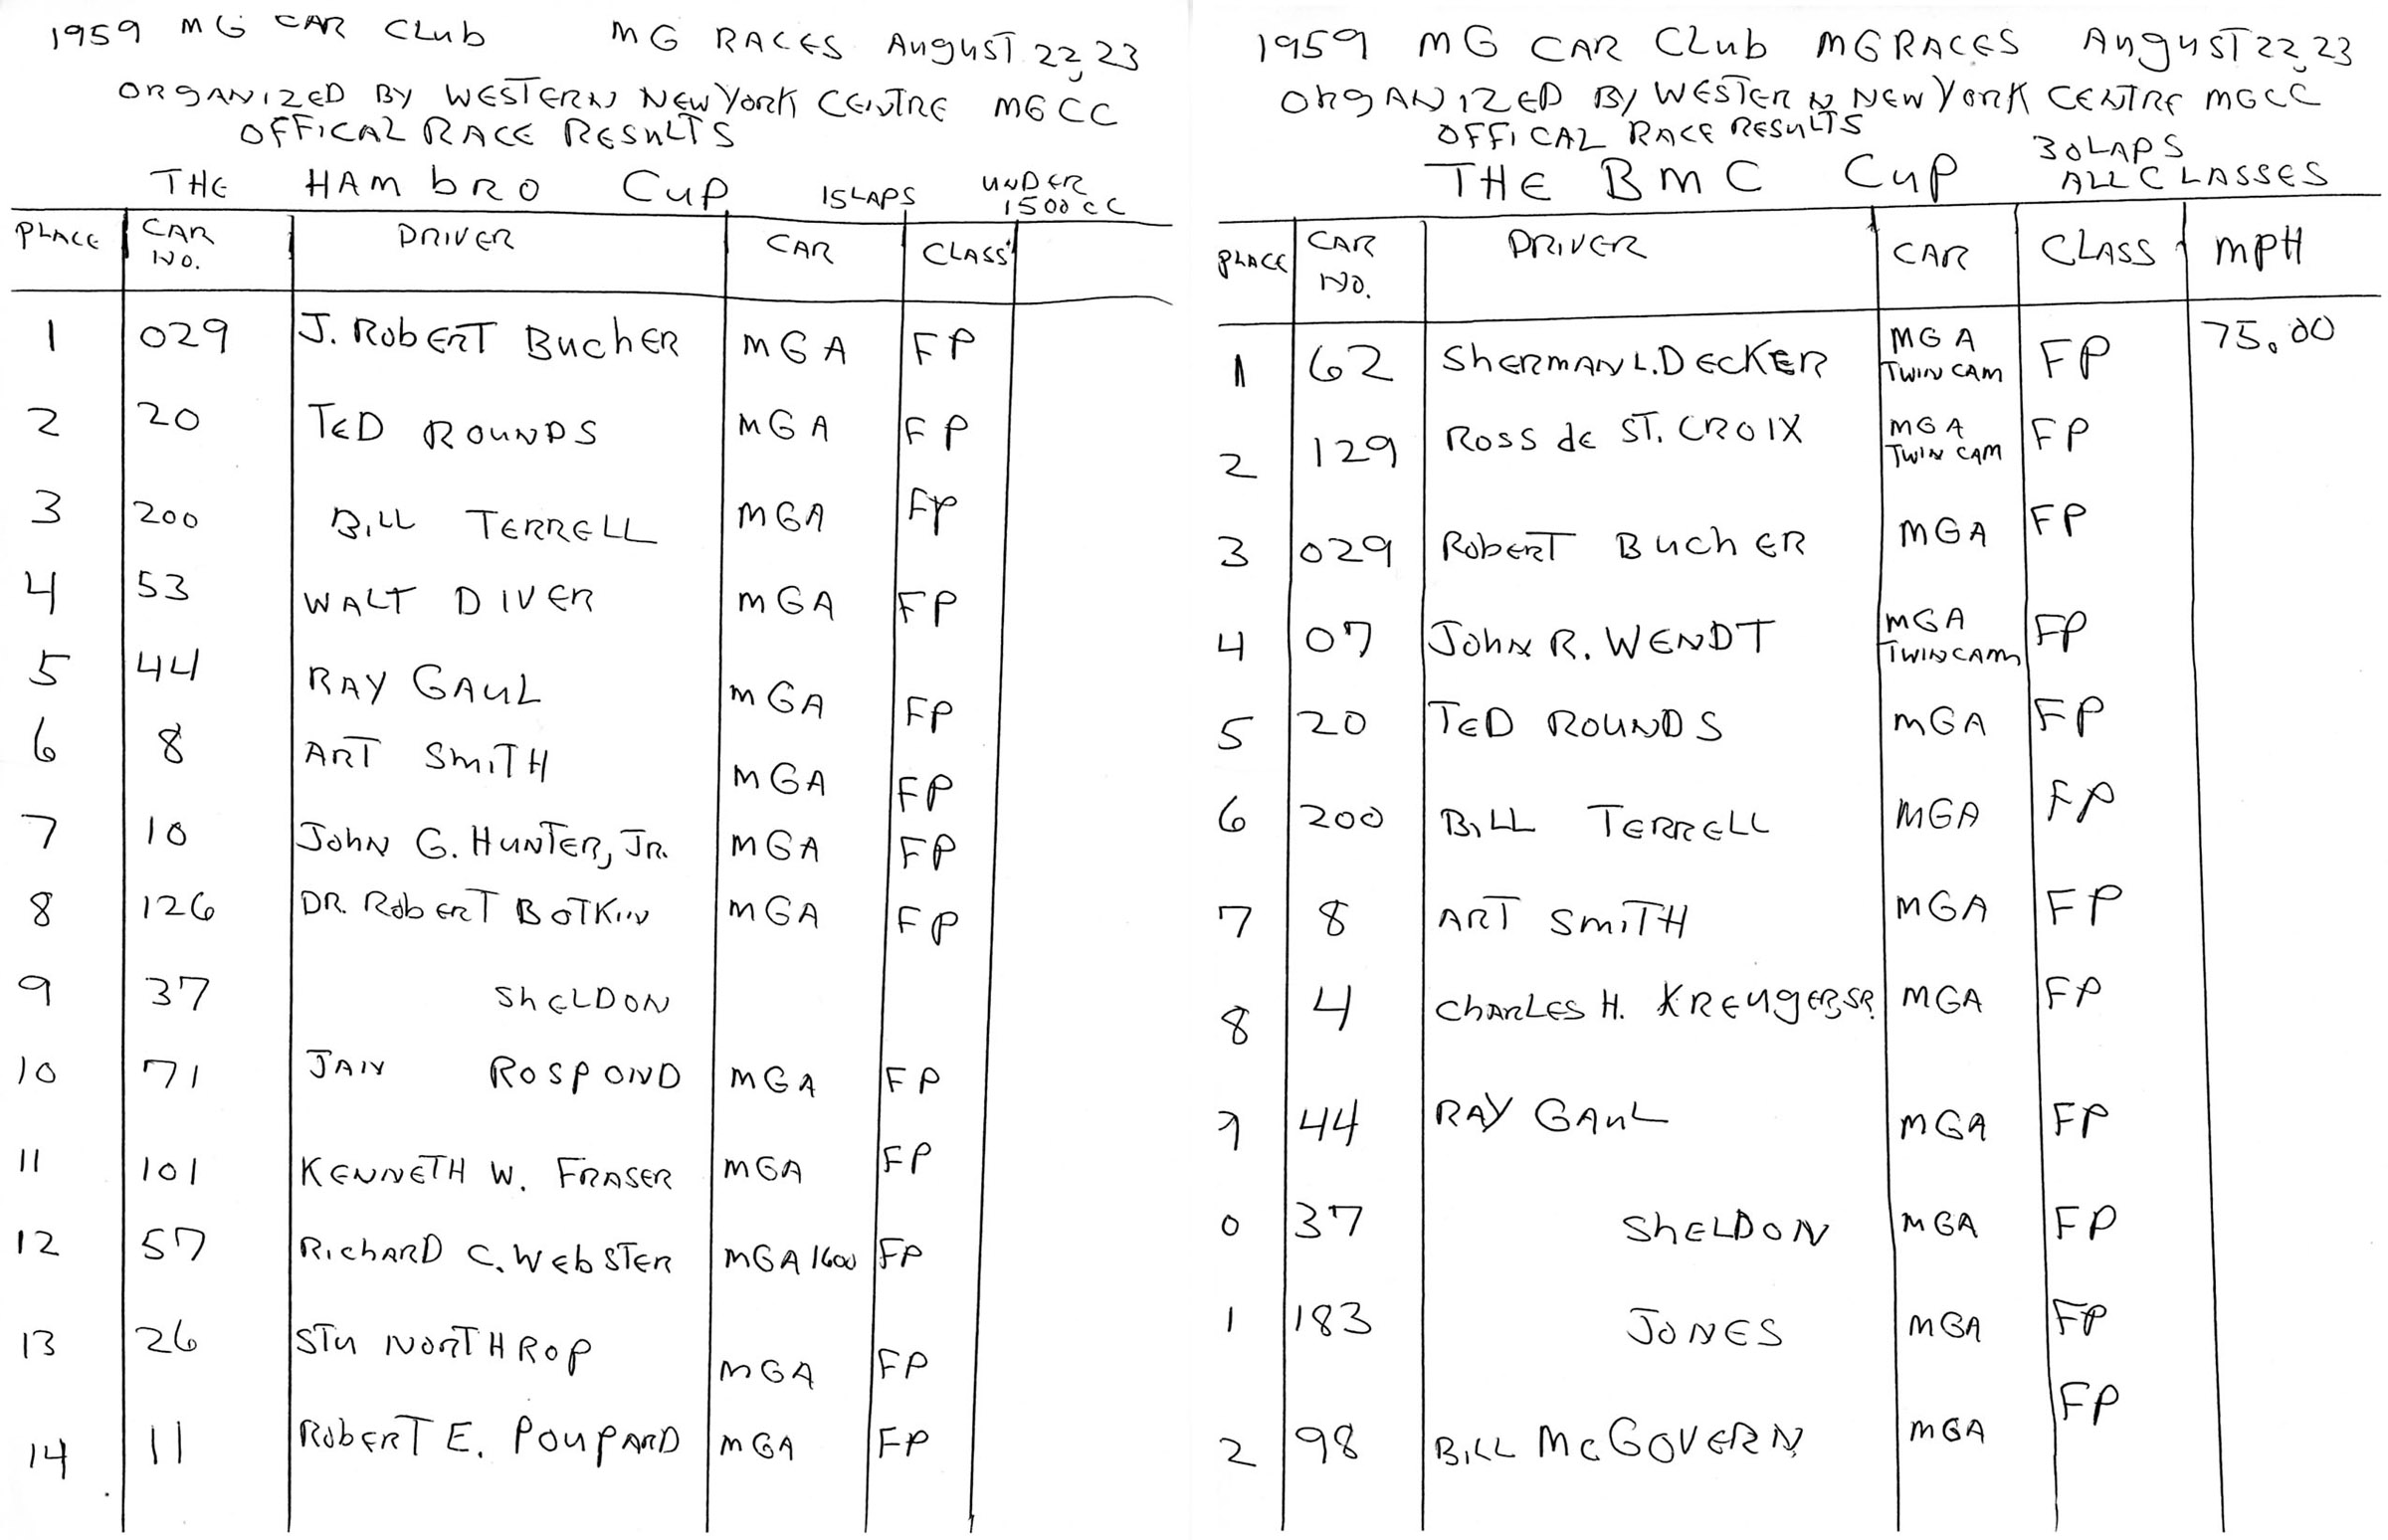 1959 MG CAR Club MG RACES August 22, 23
ORGANIZED BY WESTERN NEW YORK CENTRE MGCC
OFFICAL RACE RESULTS
THE HAMbRO Cup 15LAPS UNDER 1500CC
PLACE CAR NO. DRIVER CAR CLASS
1 029 J. RobERT BucHER MGA FP
2 20 TED ROUNDS MGA FP
3 200 BiLL TERRELL MGA FP
4 53 WALT DIVER MGA FP
5 44 RAY GAUL MGA FP
6 8 ART SMiTH MGA FP
7 10 JohN G. HUNTER, JR. MGA FP
8 126 DR. RobERT BOTKIN MGA FP
9 37 ShELDON
10 71 JAN ROSPOND MGA FP
11 101 KENNETH W. FRASER MGA FP
12 57 RichARD C. WEbSTER MGA 1600 FP
13 26 STU NORTHROP MGA FP
14 11 RobERT E. POUPARD MGA FP
1959 MG CAR CLub MG RACES AugusT 22, 23
ORgANIZED By WESTERN NEW YORK CENTRE MGCC
OFFICAL RACE RESULTS
THE BMC Cup 30LAPS ALL CLASSES
PLACE CAR NO. DRIVER CAR CLASS MPH
1 62 ShERMAN L. DECKER MGA TWIN CAM FP 75.00
2 129 ROSS dE ST. CROIX MGA TWIN CAM FP
3 029 RobERT BuchER MGA FP
4 07 JohN R. WENDT MGA TWIN CAM FP
5 20 TED ROUNDS MGA FP
6 200 BiLL TERRELL MGA FP
7 8 ART SMiTH MGA FP
8 4 ChARLES H. KREUgER, SR. MGA FP
9 44 RAY GAUL MGA FP
0 37 ShELDON MGA FP
1 183 JONES MGA FP
2 98 BiLL McGOVERN MGA FP